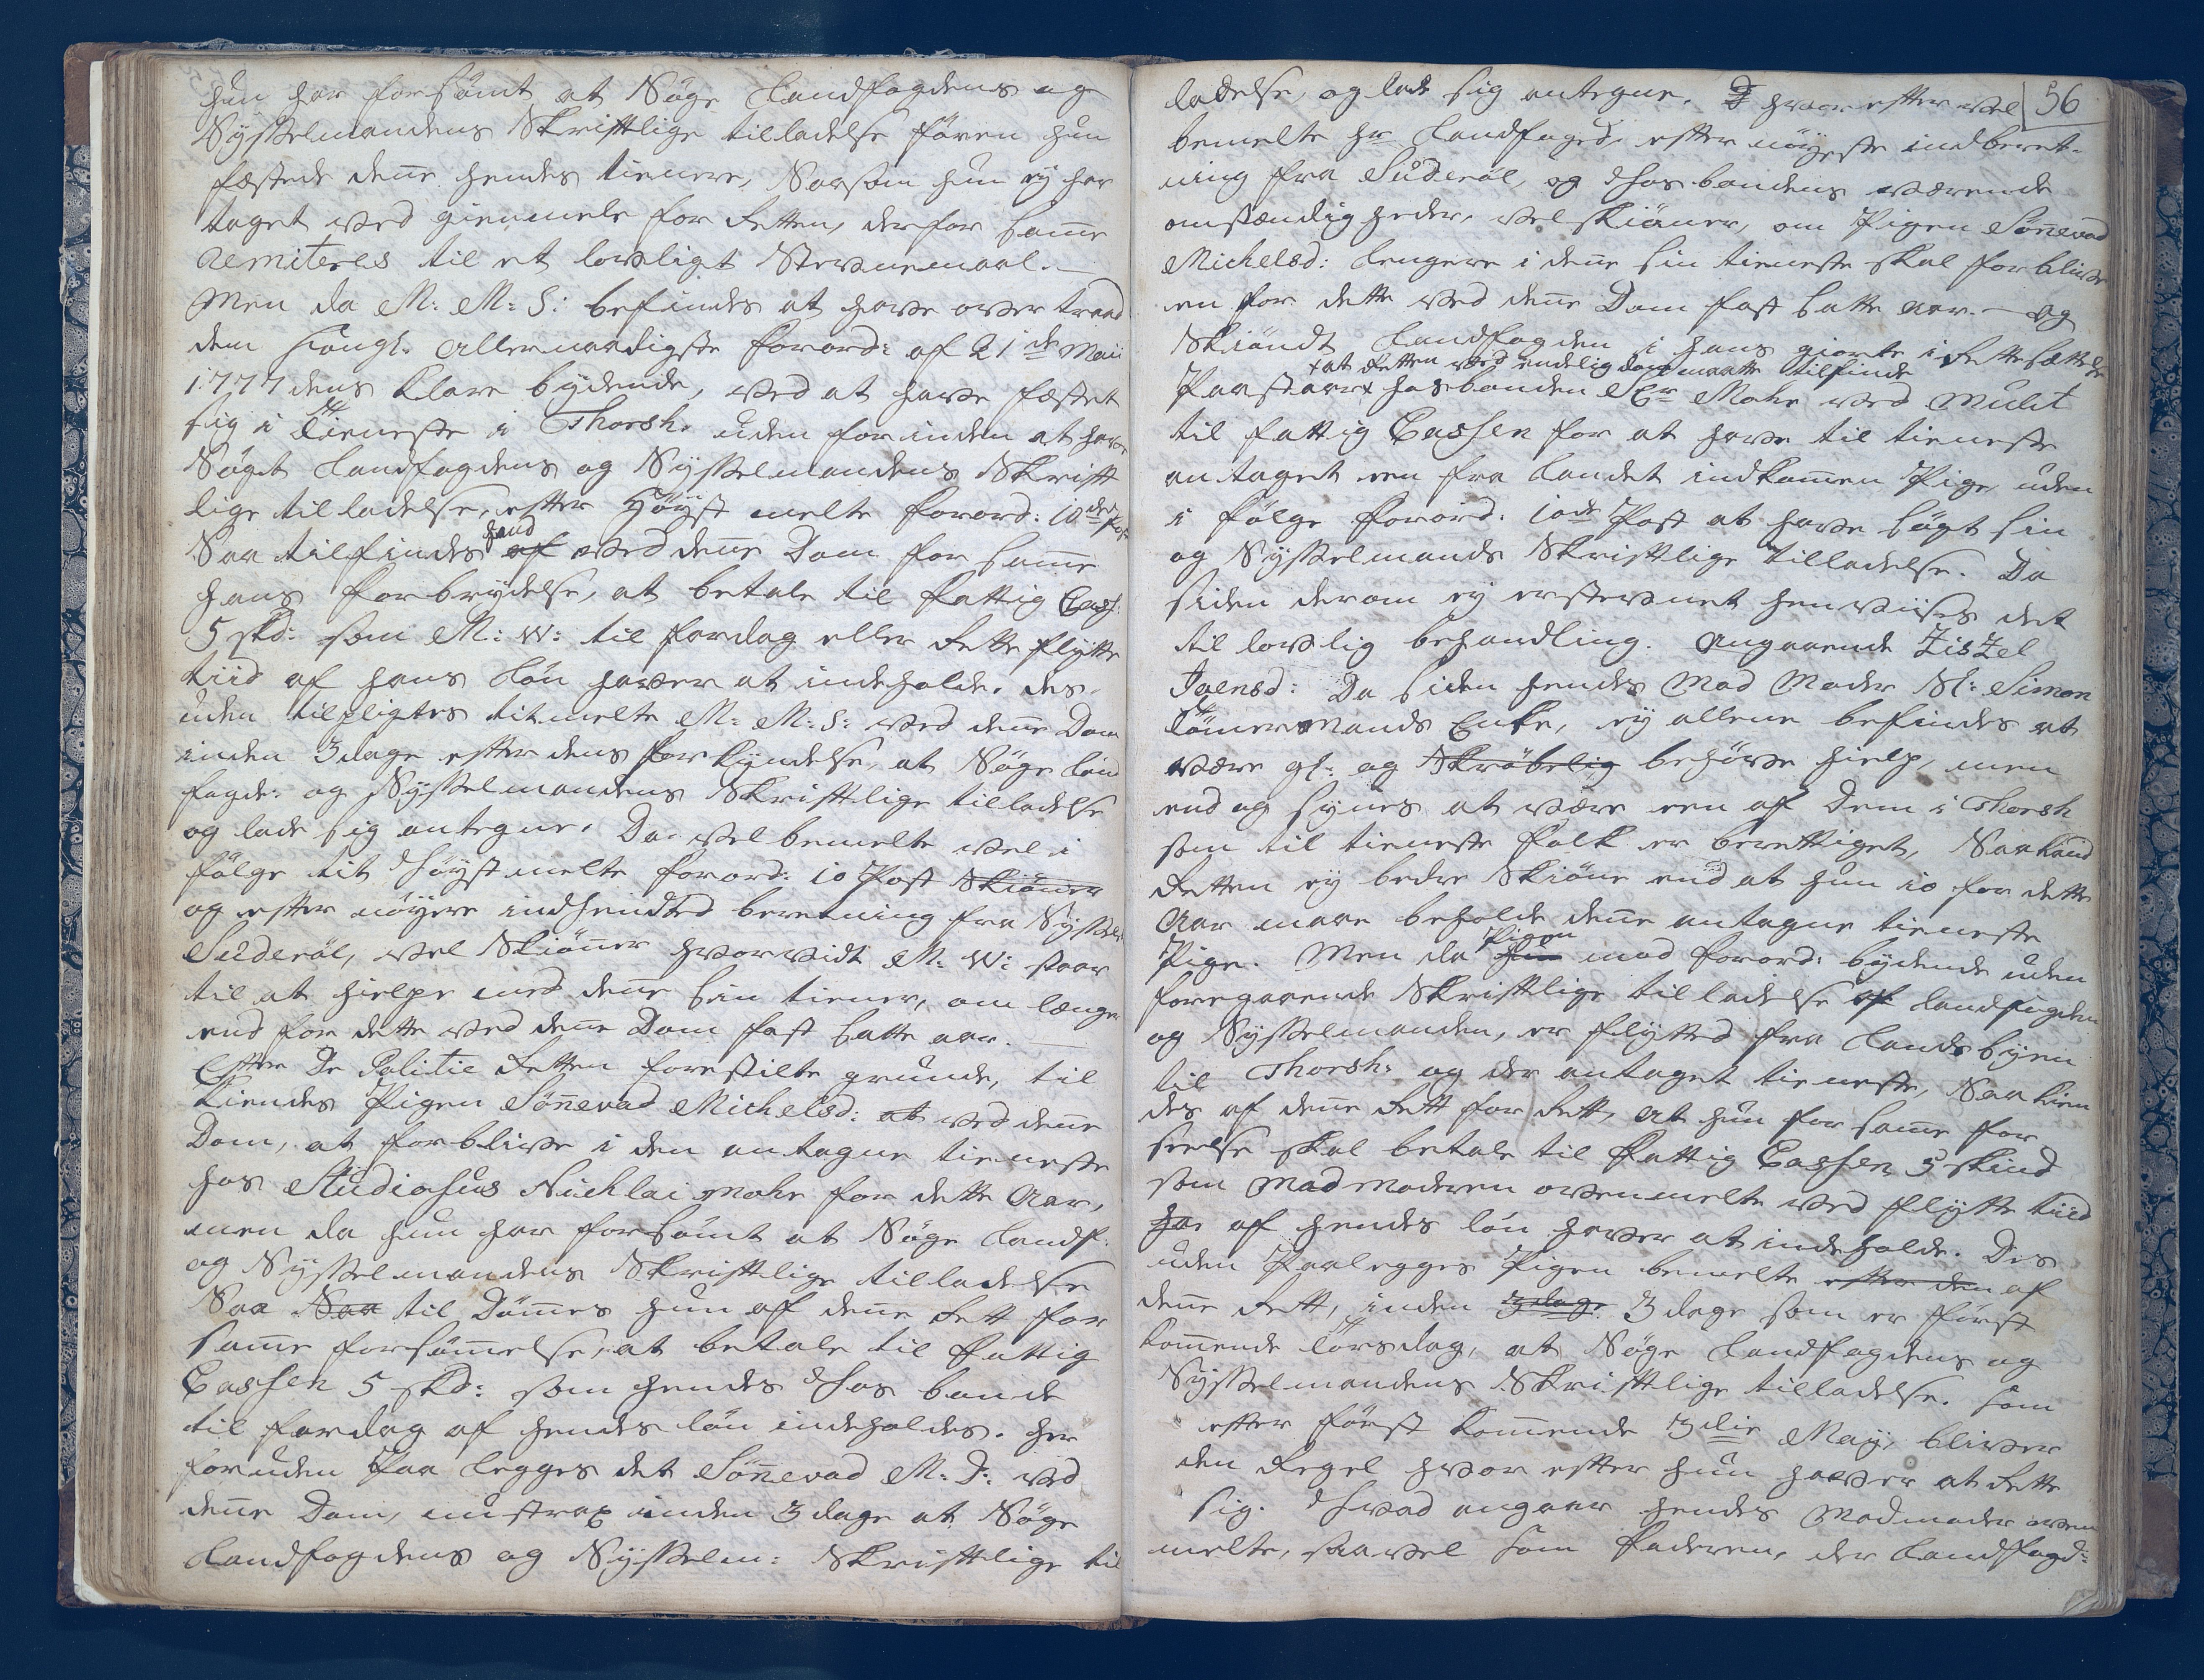 hun har forsömt at Söge Landfogdens og
Sysselmandens Skriftlige tilladelse fören hun
fæstede deñe hendes tienere, Saasom hun ey har
taget ved giennmele for Retten, derfor sam̃e
Remiteres til et lovligt Stevnemaal. —
Men da M: M: S: befindes at have overtraad
dem Kongl. Allernaadigste Forord: af 21de Maii
1777 dens klare bydende, ved at have fæstet
sig i Tieneste i Thorsh. uden forinden at have
Søgt Landfogdens og Sysselmandens Skrift
lige tilladelse, efter Höyst melte Forord: 10de Post
Saa tilfindes hand af ved deñe Dom for sam̃e
hans forbrydelse, at betale til Fattig Cass:
5 skd: som M: W: til fardag eller Rette flytte
tiid af hans Lön haver at indeholde. des-
uden tilpligtes titmelte M: M: S: ved deñe Dom
inden 3 dage efter dens forkyndelse, at Söge Land
fogd: og Sysselmandens Skriftlige tilladelse
og lade sig antegne. Da velbemelte vel i
fölge tit Höystmelte Forord: 10 Post Skiöner
og efter nöyere indhendted beretning fra Syssel:
Süderöe, vel Skiöner hvorvidt M: W: staar
til at hielpe med deñe sin tiener, om længer
end for dette ved deñe Dom fast satte aar. —
Efter De Politie Retten forestilte grunde, til
kiendes Pigen Söñevad Michelsd: at ved deñe
Dom, at forblive i den antagne tieneste
hos Studiosus Nicklai Mohr for dette Aar,
men da hun har forsömt at Söge Landf:
og Sysselmandens Skriftlige tilladelse
Saa Saa til Döm̃es hun af deñe Rett for
sam̃e forsöm̃else, at betale til Fattig
Cassen 5 skd: som hendes Hosbonde
til fardag af hendes lön indeholdes. her
foruden Paa Legges det Söñevad M: D: ved
deñe Dom, nu strax inden 3 dage at Söge
Landfogdens og Sysselm: Skriftlige til
56
ladelse, og lade sig antegne. D hvorefter vel
bemelte Hr Landfoged, efter nöyeste indberet-
ning fra Süderöe, og Hosbondens værende
omstændigheder, vel skiöner, om Pigen Söñevad
Michelsd: lengere i deñe sin tieneste skal forblive
en for dette ved deñe Dom fast satte aar. — og
Skiöndt Landfogden i hans giorte i Rettesættelse
x at Retten ved endelig Dom maatte tilfinde
Paastaar x hosbonden Sr Mohr ved Mulct
til fattig Cassen for at have til tieneste
antaget een fra Landet indkom̃en Pige, uden
i fölge Forord: 10de Post at have sögt sin
og Sysselmands Skriftlige tilladelse. Da
siden derom ey erstevnet henviises det
til lovlig behandling. Angaaende Zidzel
Joensd: Da siden hendes Mad Moder Sl: Simon
Tömermands Enke, ey allene befindes at
være gl: og Skröbelig behöve hielp, men
end og synes at være een af Dem i Thorsh
som til tieneste folk er berettiget, Saa kand
Retten ey bedre Skiöne end at hun io for dette
Aar maae beholde deñe antagne tieneste
Pige. Men da Pigen hun mod Forord: bydende uden
foregaaende Skriftlige tilladelse af Landfogden
og Sysselmanden, er flytted fra Landsbyen
til Thorsh. og der antaget tieneste, Saa kien
des af deñe Rett for Rett, at hun for sam̃e for
seelse skal betale til Fattig Cassen 5 Skind
som Madmoderen ovenmelte ved flytte tiid
ha af hendes lön haver at indeholde. Des
uden Paalegges Pigen bemelte efter den af
deñe Rett, inden 3 dage 3 dage som er först
kom̃ende Torsdag, at Söge Landfogdens og
Sysselmandens Skriftlige tilladelse. som
efter först kom̃ende 3die May, bliver
den Regel hvor efter hun haver at Rette
sig. Hvad angaar hendes Madmoder oven
melte, saavel som Faderen, der Landfogd: